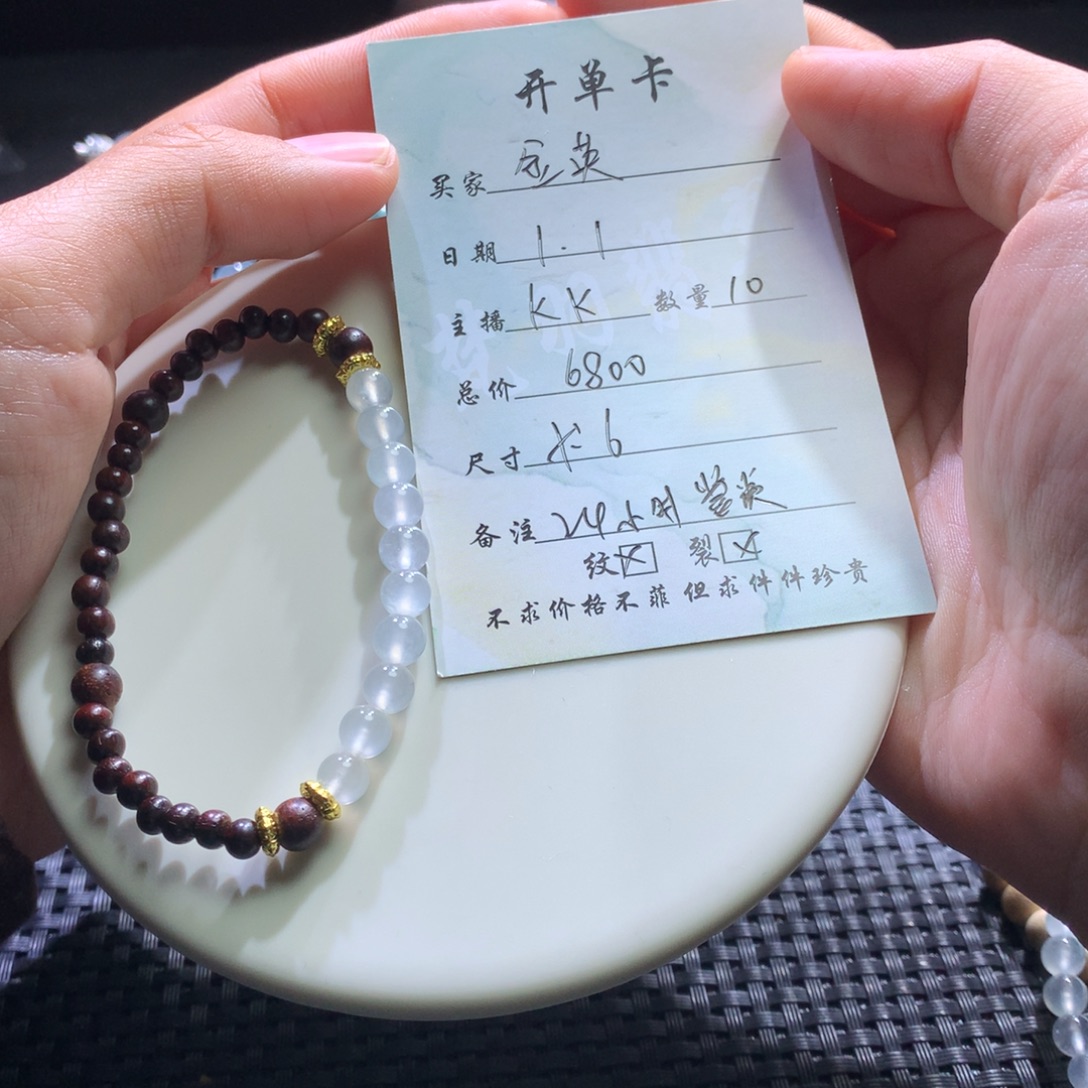 开单卡
买家
日期 1.1
主播 KK 数量 10
总价 6800
尺寸 长6
备注 24小时鉴赏
纹☒ 裂☒
不求价格不菲但求件件珍贵